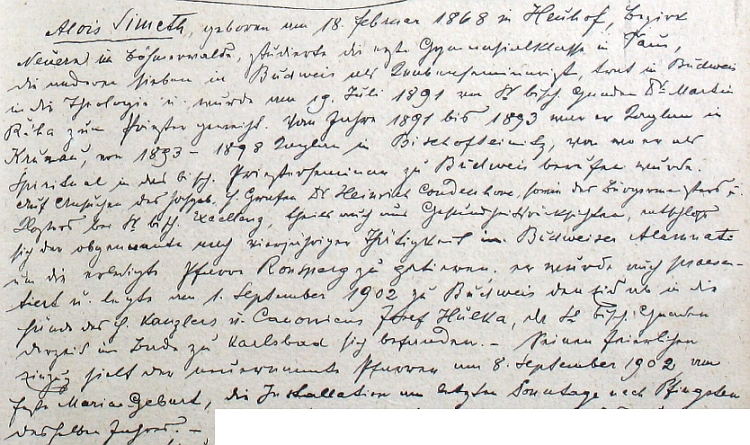 Alois Simeth, geboren am 18. Februar 1868 in Heuhof, Bezirk
Neuern im Böhmerwalde, studierte die erste Gymnasialklasse in Taus,
die anderen sieben in Budweis als Knabenseminarist, trat in Budweis
in die Theologie u. wurde am 19. Juli 1891 von Sr bisch. Gnaden Dr Martin
Říha zum Priester geweiht. Vom Jahre 1891 bis 1893 war er Kaplan in
Krumau, von 1893 - 1898 Kaplan in Bischofteinitz, von wo er als
Spiritual in das bisch. Priesterseminar zu Budweis berufen wurde.
Auf Ansuchen des H. Grafen Dr Heinrich Coudenhove, sowie des Bürgermeisters u
bei Sr bisch. Excellenz, theils auch aus Gesundheitsrücksichten, entschloß
sich der obgenannte nach vierjähriger Thätigkeit im Budweiser Alumnate
um die erledigte Pfarre Ronsperg zu petieren. er wurde auch praesen-
tiert u. legte am 1. September 1902 zu Budweis den Eid ab in die
Hände des H. Kanzlers u. Canonicus Josef Hůlka, da Sr bisch. Gnaden
derzeit im Bade zu Karlsbad sich befanden. - Seinen feierlichen
Einzug hielt der neuernannte Pfarrer am 8. September 1902, am
Feste Mariae Geburt, die Installation am letzten Sonntage nach Pfingsten
desselben Jahres. -